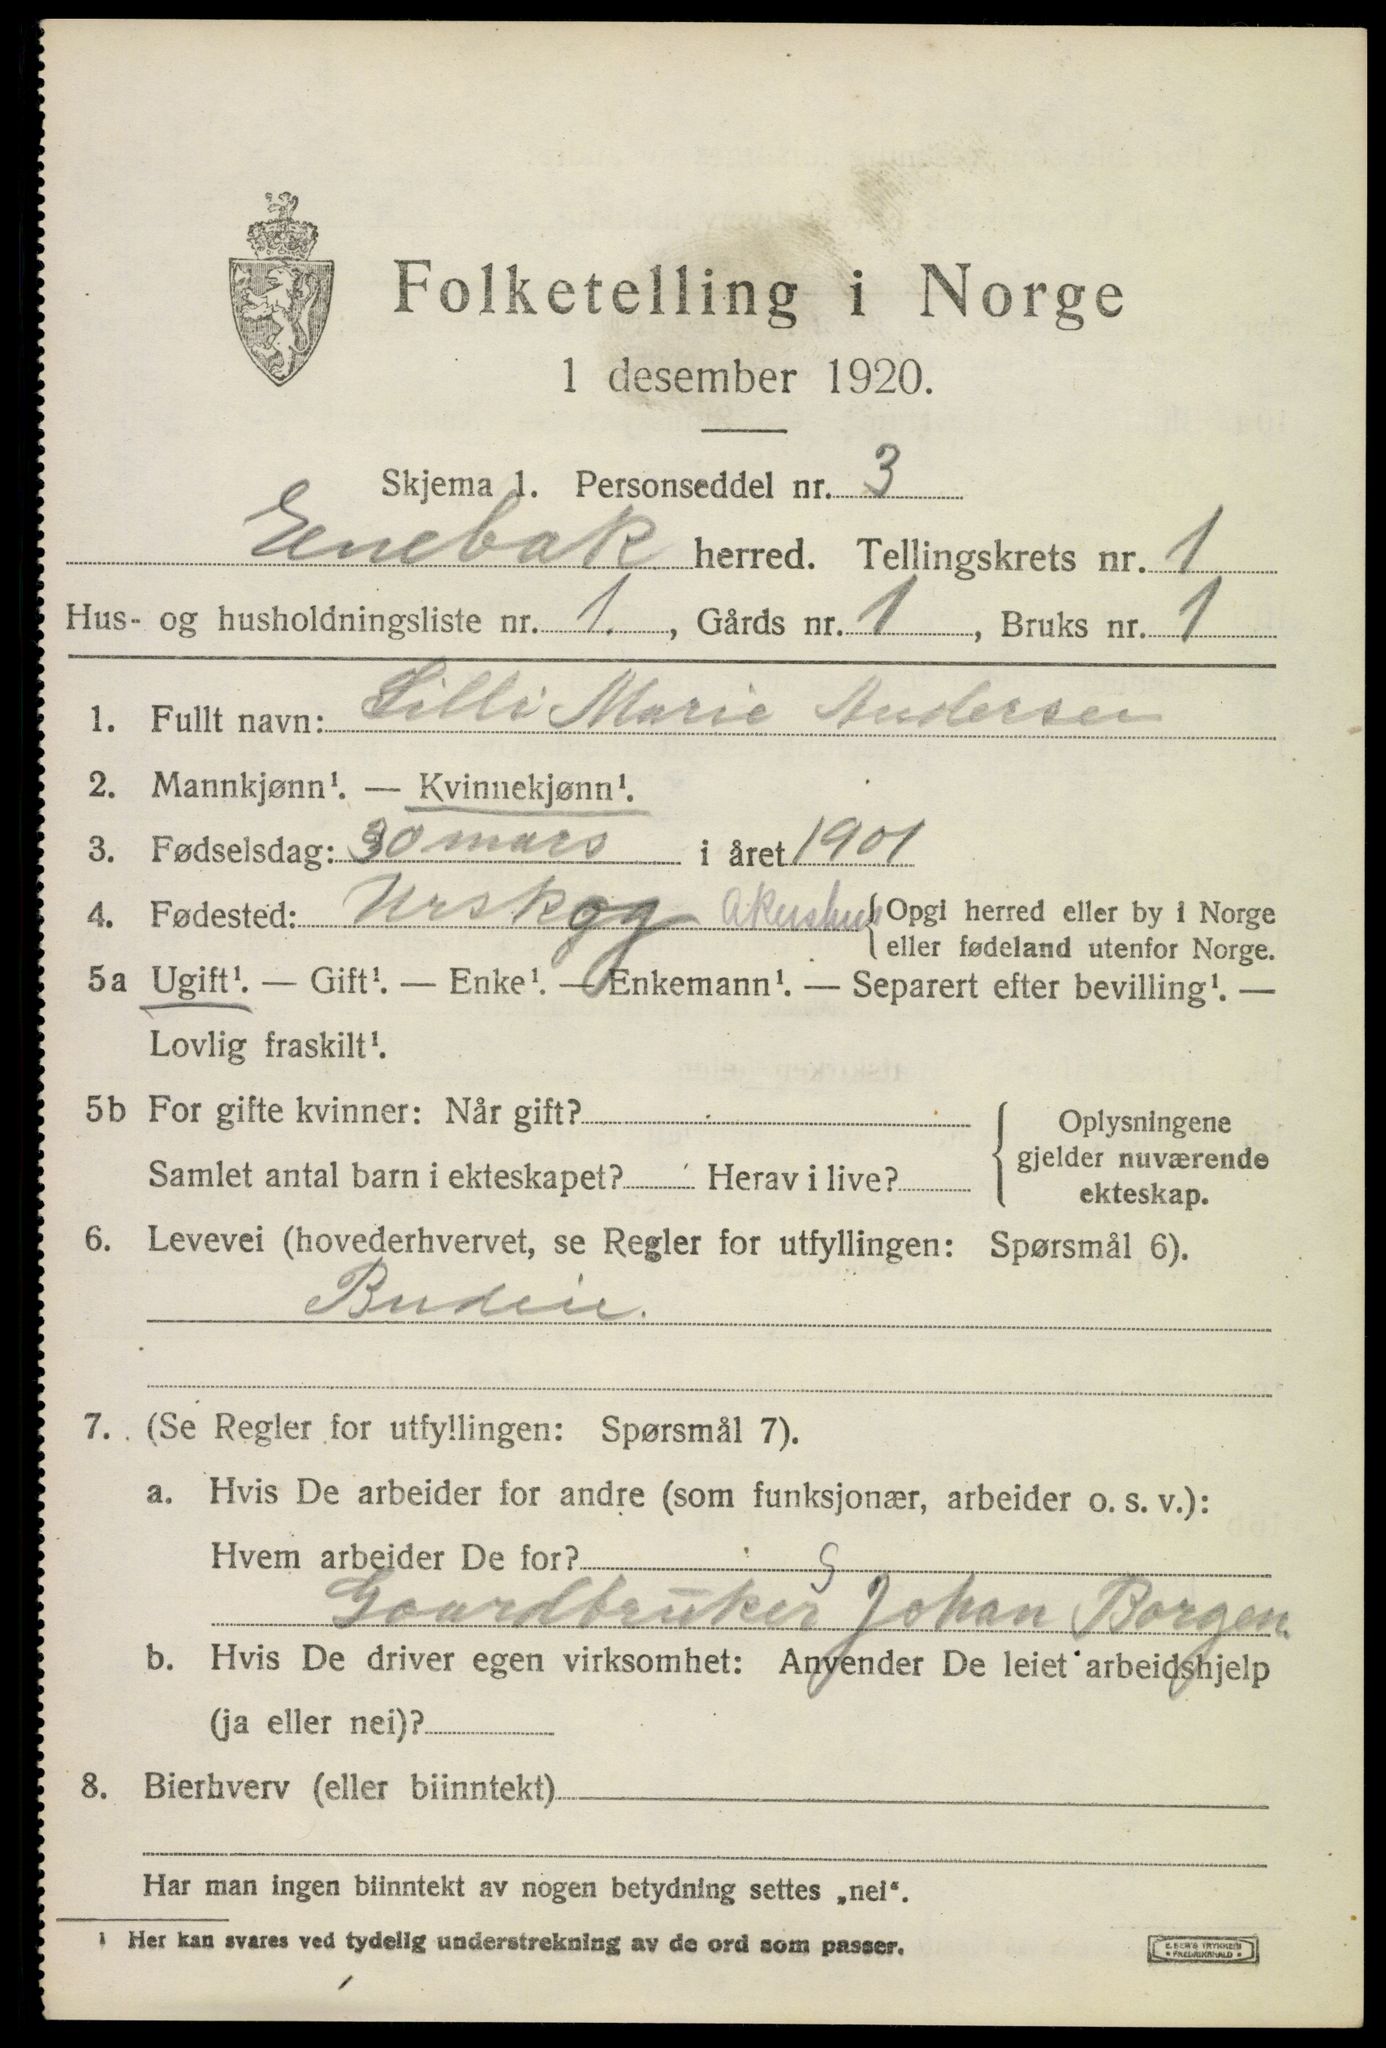 Folketelling i Norge
1 desember 1920.
Skjema 1. Personseddel nr. 3
Enebak herred. Tellingskrets nr. 1
Hus- og husholdningsliste nr. 1. , Gårds nr. 1 , Bruks nr. 1
1. Fullt navn: Lilli Marie Andersen
2. Mannkjønn¹. — Kvinnekjønn¹.
3. Fødselsdag: 30 mars i året 1901
4. Fødested: Urskog Akershus { Opgi herred eller by i Norge
eller fødeland utenfor Norge.
5a Ugift¹. — Gift¹. — Enke¹. — Enkemann¹. — Separert efter bevilling¹. —
Lovlig fraskilt¹.
5b For gifte kvinner: Når gift?
Samlet antal barn i ekteskapet? Herav i live?
{ Oplysningene
gjelder nuværende
ekteskap.
6. Levevei (hovederhvervet, se Regler for utfyllingen: Spørsmål 6).
Budeie.
7. (Se Regler for utfyllingen: Spørsmål 7).
a. Hvis De arbeider for andre (som funksjonær, arbeider o. s. v.):
Hvem arbeider De for?
Gaardbruker Johan Borgen.
b. Hvis De driver egen virksomhet: Anvender De leiet arbeidshjelp
(ja eller nei)?
8. Bierhverv (eller biinntekt)
Har man ingen biinntekt av nogen betydning settes „nei".
¹ Her kan svares ved tydelig understrekning av de ord som passer.
E. SEM'S TRYKKERI
FREDRIKSHALD